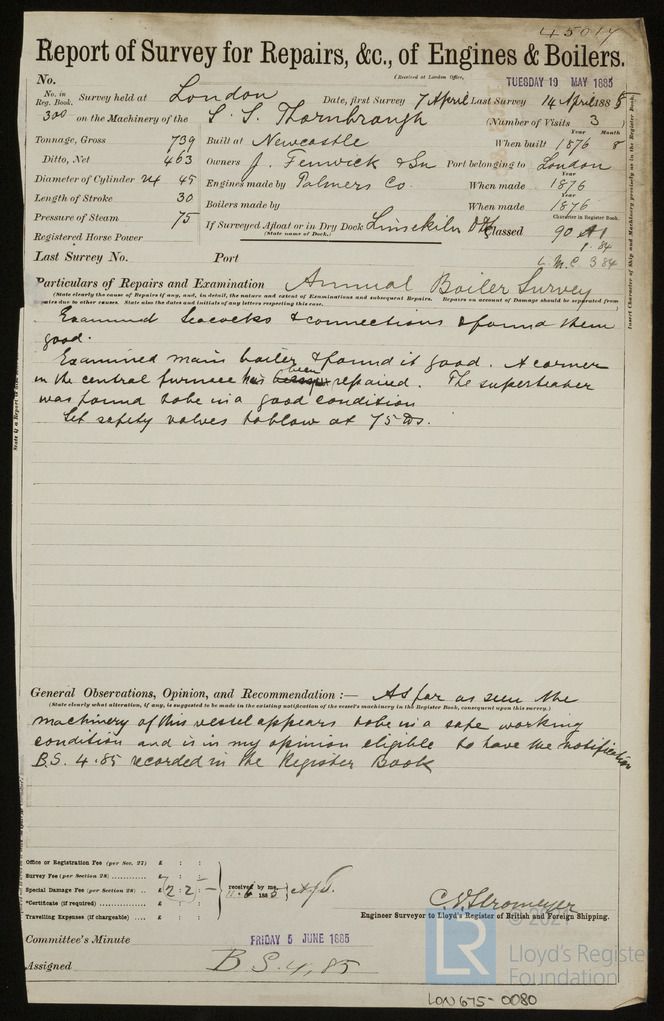 45017
Report of Survey for Repairs, &c., of Engines & Boilers.
(Received at London Office, TUESDAY 19 MAY 1885
No.
No. in Reg. Book. Survey held at London Date, first Survey 7 April Last Survey 14 April 1885
300 on the Machinery of the S. S. Thornbrough (Number of Visits 3 )
Tonnage, Gross 739 Built at Newcastle When built Year 1876 Month 8
Ditto, Net 463 Owners J. Fenwick & Sn Port belonging to London
Diameter of Cylinder 24 45 Engines made by Palmers Co. When made Year 1876
Length of Stroke 30 Boilers made by When made Year 1876
Pressure of Steam 75 If Surveyed Afloat or in Dry Dock Classed Character in Register Book. 90 A1
(State name of Dock.)
Registered Horse Power 1.84
Last Survey No. Port L.M.C. 3 84
Particulars of Repairs and Examination Annual Boiler Survey
(State clearly the cause of Repairs if any, and, in detail, the nature and extent of Examinations and subsequent Repairs. Repairs on account of Damage should be separated from
Repairs due to other causes. State also the dates and initials of any letters respecting this case.
Examined Seacocks & connections & found them
good.
Examined main boiler & found it good. A corner
in the central furnace has been repaired. The superheater
was found to be in a good condition
Set safety valves to blow at 75 lbs.
General Observations, Opinion, and Recommendation :— As far as seen the
(State clearly what alteration, if any, is suggested to be made in the existing notification of the vessel's machinery in the Register Book, consequent upon this survey.)
machinery of this vessel appears to be in a safe working
condition and is in my opinion eligible to have the notification
B.S. 4.85 recorded in the Register Book
Office or Registration Fee (per Sec. 27) £ : :
Survey Fee (per Section 28) £ : :
Special Damage Fee (per Section 28) £ 2 : 2 : - received by me, 11.6 1885
*Certificate (if required) £ : :
Travelling Expenses (if chargeable) £ : :
C. E. Stromeyer
Engineer Surveyor to Lloyd's Register of British and Foreign Shipping.
Committee's Minute FRIDAY 5 JUNE 1885
Assigned B S. 4, 85
© 2021
LR
Lloyd's Register
Foundation
LON 675-0080